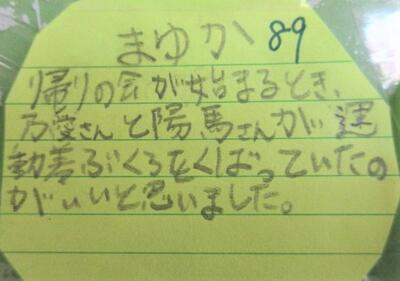 まゆか 89
帰りの会が始まるとき、
乃愛さんと陽馬さんが運
動着ぶくろをくばっていたの
がいいと思いました。